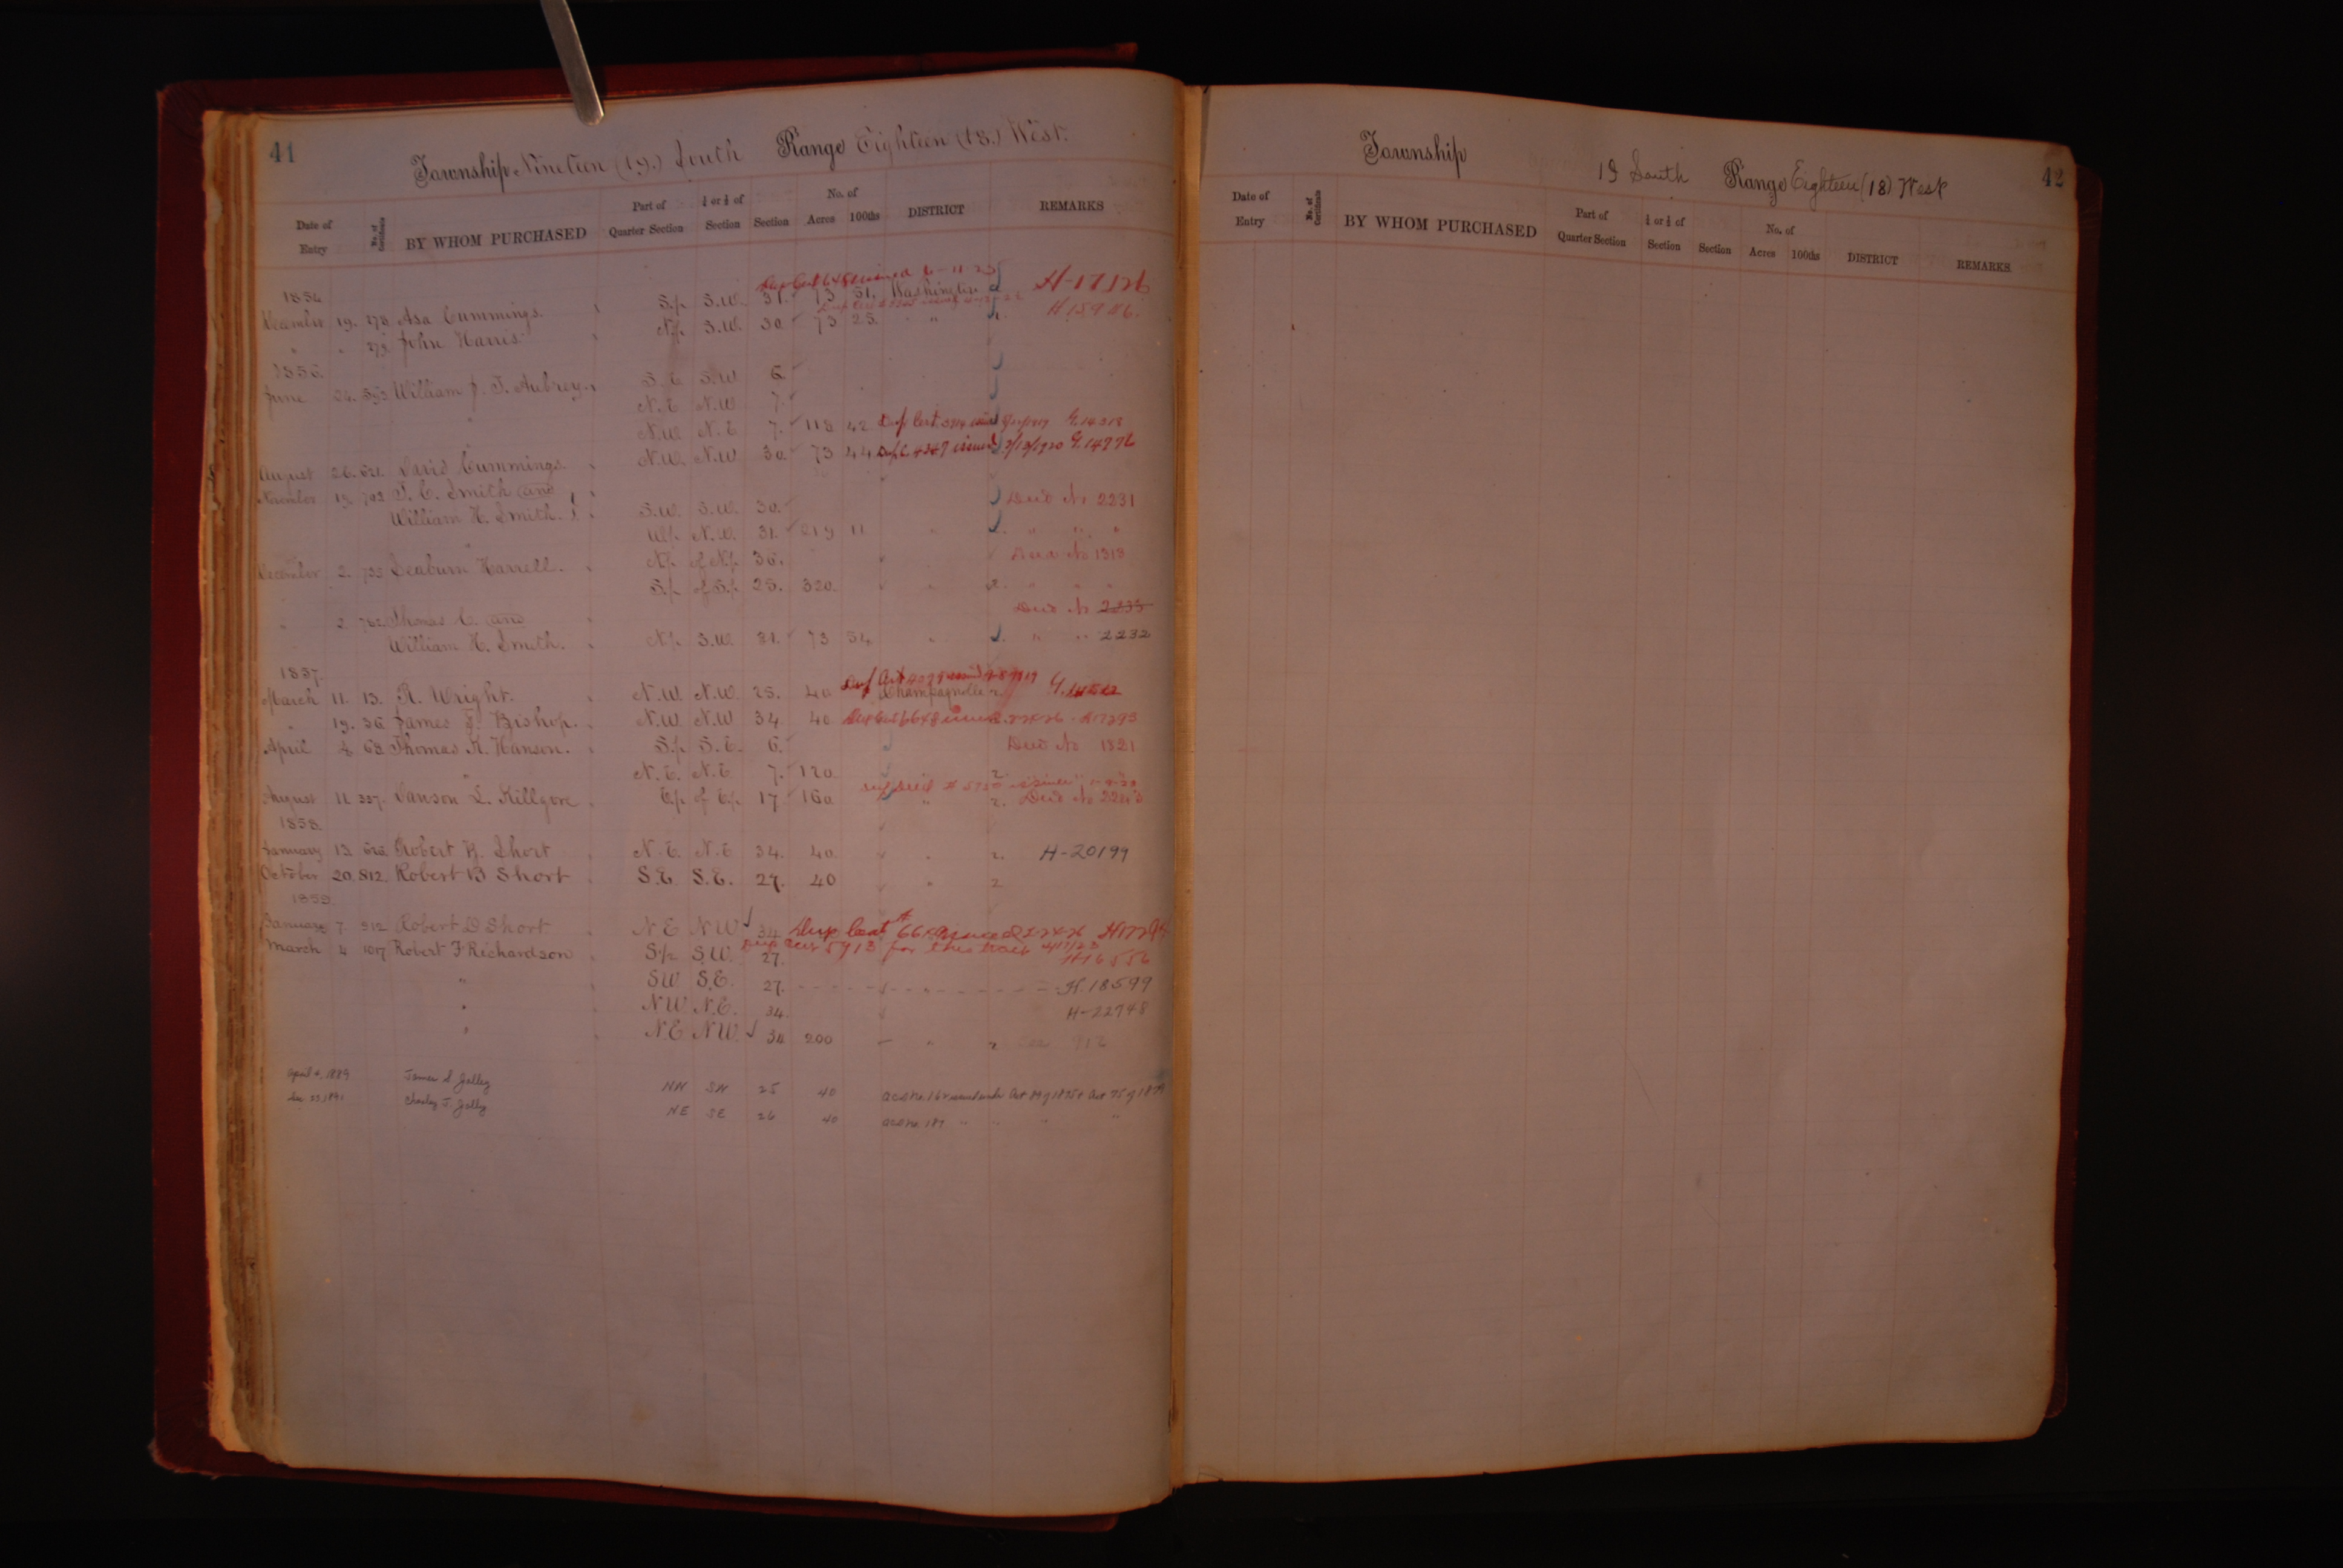 41
Township Nineteen (19.) South Range Eighteen (18.) West.
Date of Entry No. of Certificate BY WHOM PURCHASED Part of Quarter Section ¼ or ½ of Section Section No. of Acres 100ths DISTRICT REMARKS
issued 6-11-25
1854
December 19. 278 Asa Cummings. S.½ S.W. 31. 73 51. Washington H-17126
" " 279 John Harris N.½ S.W. 30. 73 25. " H.15986.
1856.
June William J. T. Aubrey. S.E S.W 6.
N.E N.W 7.
" N.W. N.E 7. 118 42 Dup Cert. issued G.14318
August 26. 621. David Cummings N.W. N.W 30. 73 44 Dup C. 4347 issued 2/13/1920 G.14776
November 18 702 T. C. Smith and
William H. Smith. S.W. S.W. 30. Deed No 2231
W½ N.W. 31. 219 11 " " " "
December 2. 735 Seaburn Harrell. N½ of N½ 36. Deed No 1313
S½ of S½ 25. 320. " 2. " " "
" 2 762 Thomas C. and Deed No 2233
William H. Smith. N½ S.W. 31. 73 54 " " " 2232
1857.
March 11. 13. R. Wright. N.W. N.W. 25. 40 Champagnolle 2.
" 19. 36 James Bishop. N.W. N.W 34. 40.
April 68 Thomas R. Hanson. S.½ S.E. 6. Deed No 1821
" N.E. N.E 7. 120. 2
August 11. 337. Dawson L. Killgore. E½ of E½ 17 160 " 2. Deed No
1858.
January 13 Robert B. Short N.E. N.E 34. 40. " 2. H-20199
October 20. 812. Robert B Short S.E S.E. 27. 40 " 2
1859.
January 7 912 Robert D Short N E N W 34 Dup Cert issued
March 4 1017 Robert F Richardson S½ S.W. 27. Dup Cert 5913 for this tract 4/17/23 H16556
" SW S.E. 27. " H.18599
" NW N.E. 34. H-22748
" N.E NW. 34 200 " 2 See 912
April 6, 1889 James S Jolley NW SW 25 40 Act 75 of 1879
Dec 23, 1891 Charley J. Jolly NE SE 26 40 " " " "
42
Township 19 South Range Eighteen (18) West
Date of Entry No. of Certificate BY WHOM PURCHASED Part of Quarter Section ¼ or ½ of Section Section No. of Acres 100ths DISTRICT REMARKS.